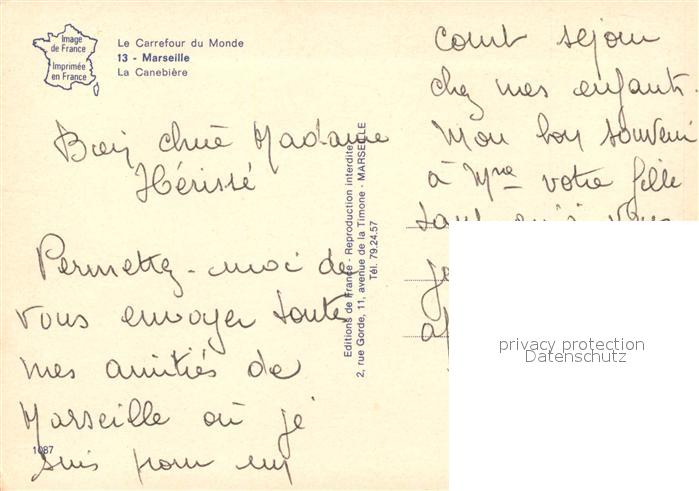 Image
de France
Imprimée
en France
Le Carrefour du Monde
13 - Marseille
La Canebière
Bien chère Madame
Hérissé
Permettez-moi de
vous envoyer toutes
mes amitiés de
Marseille où je
suis pour un
1087
Editions de France - Reproduction interdite
2, rue Gorde, 11, avenue de la Timone - MARSEILLE
Tél. 79.24.57
court séjour
chez mes enfants.
Mon bon souvenir
à Mme votre fille
privacy protection
Datenschutz